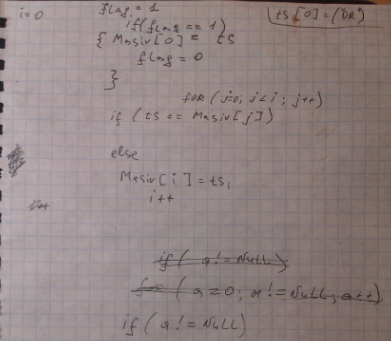 i=0
flag = 1
ts[0] = (DR)
if(flag == 1)
{ Masiv[0] = ts
flag = 0
}
for (j=0; j<i; j++)
if (ts == Masiv[j])
else
Masiv[i] = ts;
i++
i++
if( a != NULL)
for (a=0; a!=NULL; a++)
if(a != NULL)